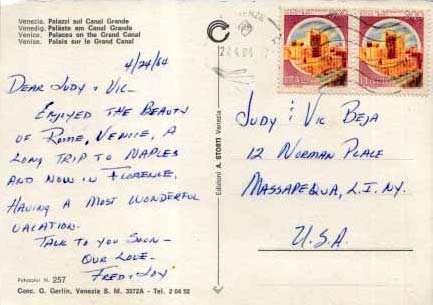 Venezia. Palazzi sul Canal Grande
Venedig. Paläste em Canal Grande
Venice. Palaces on the Grand Canal
Venise. Palais sur le Grand Canal
4/24/84
DEAR JUDY & VIC-
ENJOYED THE BEAUTY
OF ROME, VENICE, A
LONG TRIP TO NAPLES
AND NOW IN FLORENCE.
HAVING A MOST WONDERFUL
VACATION.
TALK TO YOU SOON-
OUR LOVE-
FRED & JOY
Fotocolor N. 257
Conc. G. Gerlin, Venezia S. M. 3572A - Tel. 2 04 92
Edizioni A. STORTI Venezia
JUDY & VIC BEJA
12 NORMAN PLACE
MASSAPEQUA, L.I. N.Y.
U.S.A.